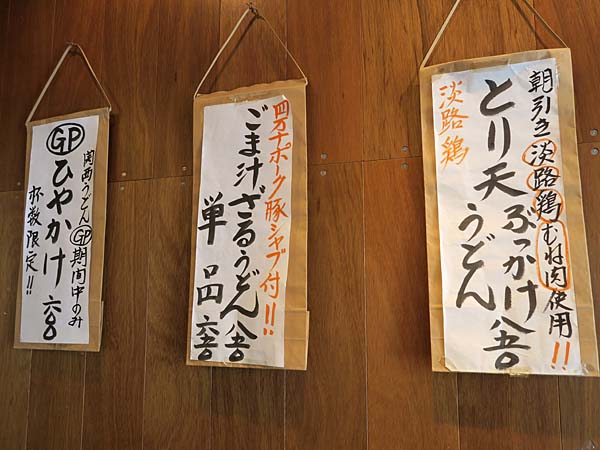 朝引き淡路鶏むね肉使用!!
とり天ぶっかけ八五〇
うどん
淡路鶏
四万十ポーク豚シャブ付!!
ごま汁ざるうどん八五〇
単品 六五〇
関西うどんGP期間中のみ
GPひやかけ 六〇〇
杯数限定!!